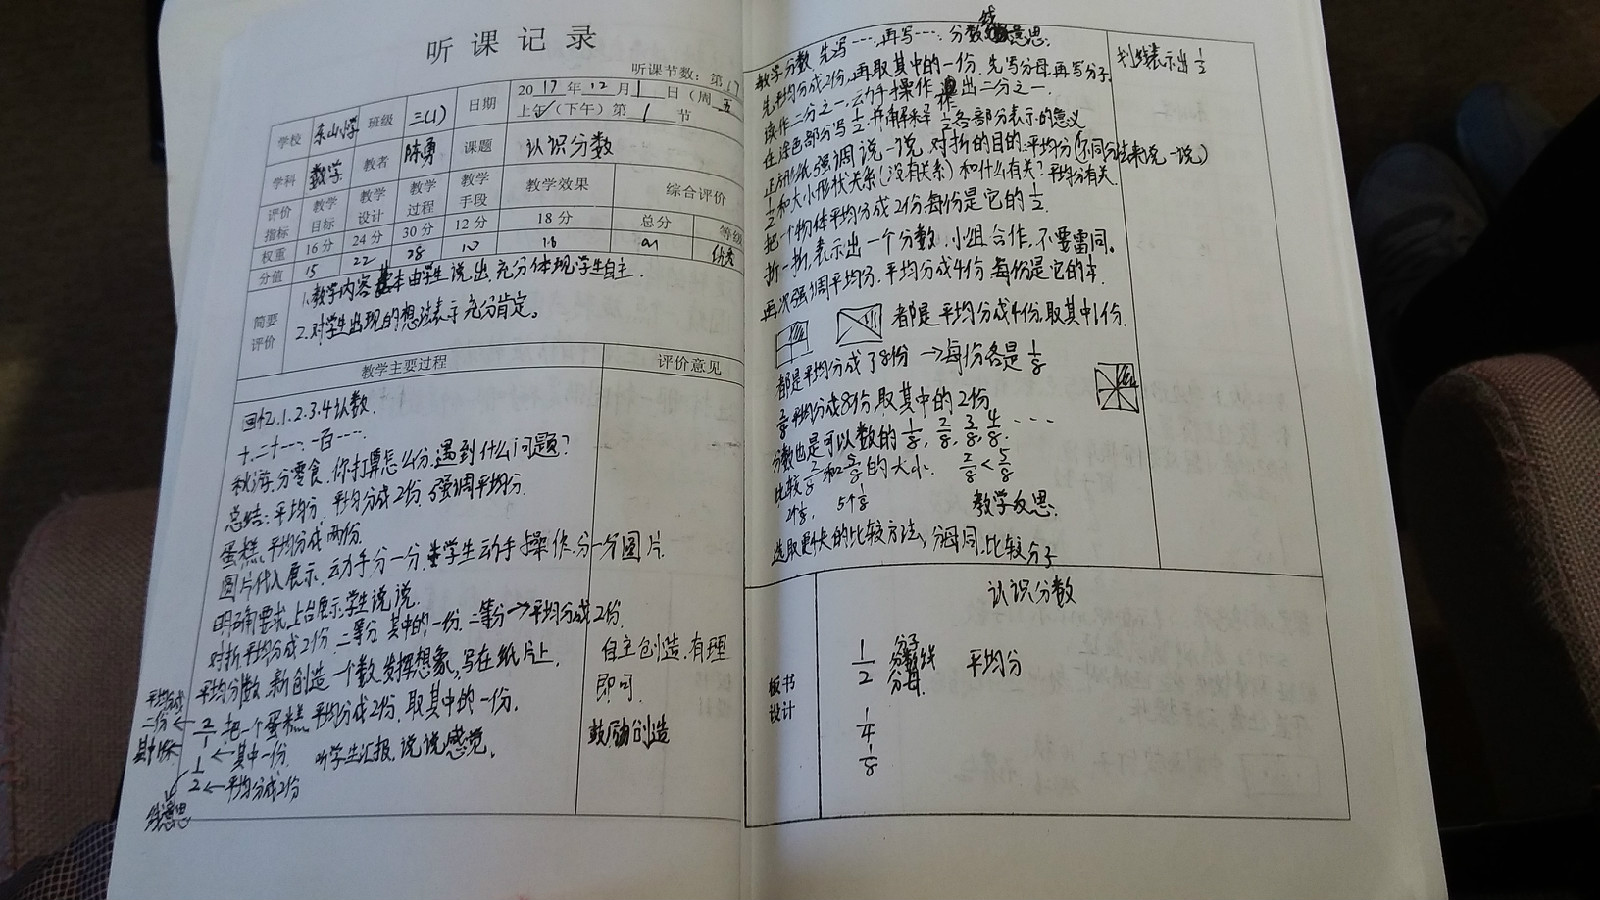 听课记录
听课节数：第17
学校 东山小学 班级 三(1) 日期 2017年12月1日（周五
上午/（下午）第1节
学科 数学 教者 陈勇 课题 认识分数
评价指标 教学目标 教学设计 教学过程 教学手段 教学效果 综合评价
权重 16分 24分 30分 12分 18分 总分 等级
分值 15 22 28 10 16 91 优秀
简要评价
1.教学内容基本由学生说出，充分体现学生自主.
2.对学生出现的想法表示充分肯定。
教学主要过程 评价意见
回忆.1.2.3.4认数.
十.二十…. 一百….
秋游.分零食.你打算怎么分.遇到什么问题?
总结:平均分. 平均分成2份.强调平均分.
蛋糕.平均分成两份.
图片代入展示.动手分一分.学生动手操作.分一分圆片.
明确要求.上台展示.学生说说.
对折.平均分成2份.二等分.其中的一份.二等分→平均分成2份.
平均分数.新创造一个数.发挥想象.写在纸片上.
自主创造.有理即可.
平均分成二份← 2/1 把一个蛋糕平均分成2份.取其中的一份.
其中1份
←其中一份. 听学生汇报.说说感觉.
鼓励创造
1/2 ←平均分成2份
线意思
教学分数.先写….再写….分数线意思.
划线表示出1/2
先平均分成2份,再取其中的一份.先写分母.再写分子.
读作二分之一.动手操作出二分之一.
在涂色部分写1/2.并解释1/2各部分表示的意义
正方形纸强调说一说.对折的目的.平均分(不同分法来说一说)
1/2和大小形状关系(没有关系)和什么有关?平均分有关.
把一个物体平均分成2份每份是它的1/2.
折一折,表示出一个分数.小组合作.不要雷同。
再次强调平均分.平均分成4份.每份是它的1/4.
都是平均分成4份.取其中1份.
都是平均分成了8份→每份各是1/8
2/8平均分成8份.取其中的2份.
分数也是可以数的1/8,2/8,3/8,4/8.…
比较2/8和5/8的大小. 2/8<5/8
2个1/8, 5个1/8 教学反思.
选取更快的比较方法,分母同,比较分子
板书设计
认识分数
1/2 分子 分数线 分母. 平均分
1/4
1/8